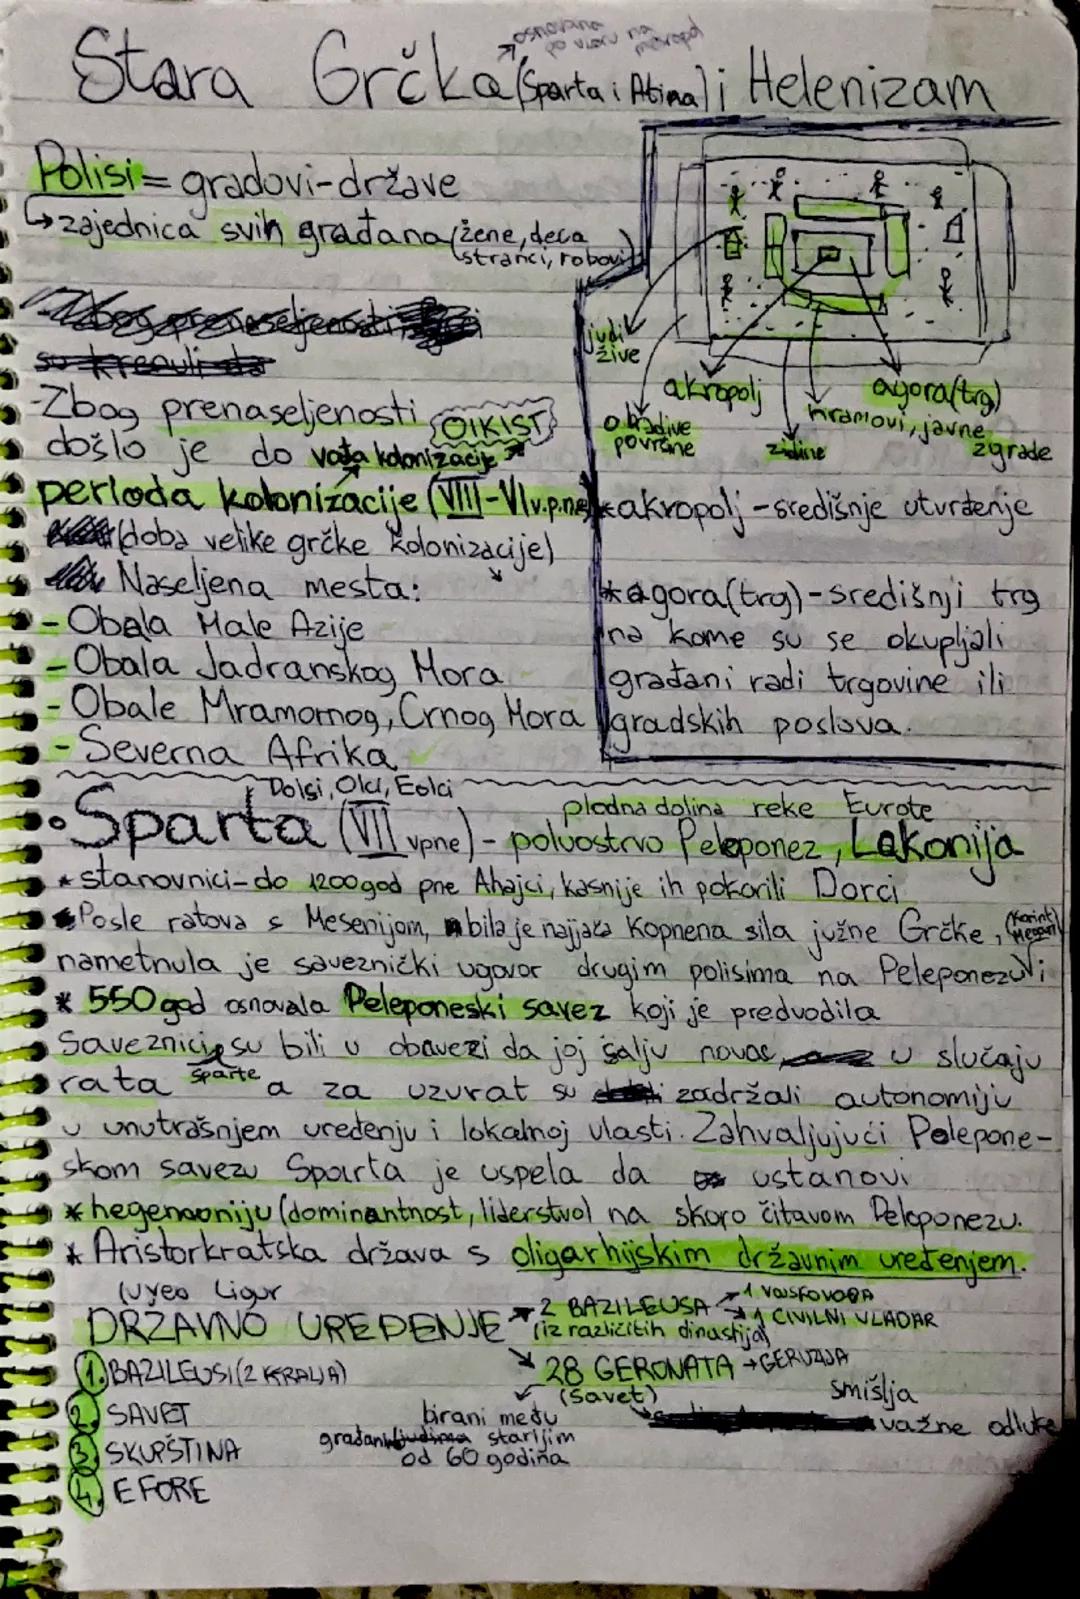 osnovana
po uzoru na
Stara Grčka (Sparta i Atina) i Helenizam
Polisi = gradovi-države
zajednica svih građana (žene, deca
stranci, robovi)
ljudi
žive
obradive
površine
akropolj
zidine
hramovi, javne
zgrade
agora (trg)
-Zbog prenaseljenosti
OIKIST
došlo je do vođa kolonizacije
perioda kolonizacije (VIII-VI v.p.ne)
(doba velike grčke kolonizacije)
Naseljena mesta:
- Obala Male Azije
- Obala Jadranskog Mora
- Obale Mramornog, Crnog Mora
- Severna Afrika
*akropolj - središnje utvrđenje
*agora (trg) - središnji trg
na kome su se okupljali
građani radi trgovine ili
gradskih poslova.
plodna dolina reke Eurote
• Sparta (VII vpne) - poluostrvo Peleponez, Lakonija
* stanovnici - do 1200 god pne Ahajci, kasnije ih pokorili Dorci
*Posle ratova s Mesenijom, bila je najjača kopnena sila južne Grčke,
nametnula je saveznički ugovor drugim polisima na Peleponezu
* 550 god osnovala Peleponeski savez koji je predvodila
Saveznici su bili u obavezi da joj šalju novac u slučaju
Sparte
rata a za uzvrat su zadržali autonomiju
u unutrašnjem uređenju i lokalnoj vlasti. Zahvaljujući Pelepone-
skom savezu Sparta je uspela da ustanovi
* hegemoniju (dominantnost, liderstvo) na skoro čitavom Peloponezu.
* Aristorkratska država s oligarhijskim državnim uređenjem.
DRŽAVNO UREĐENJE
2 BAZILEUSA
(iz različitih dinastija)
1 VOJSKOVOĐA
1 CIVILNI VLADAR
28 GERONATA → GERUZIJA
(savet)
smišlja
važne odluke
birani među
građani ljudima starijim
od 60 godina
1. BAZILEUSI (2 KRALJA)
2. SAVET
3. SKUPŠTINA
4. EFORE